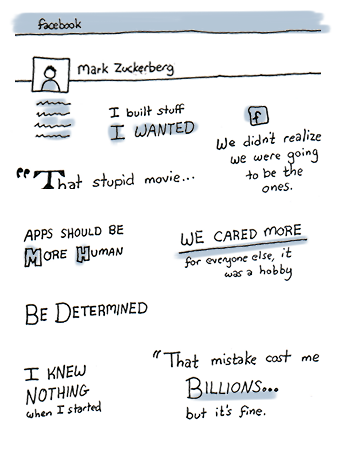 facebook
Mark Zuckerberg
I built stuff
I WANTED
f
We didn't realize
we were going
to be the
ones.
"That stupid movie...
APPS SHOULD BE
MORE HUMAN
WE CARED MORE
for everyone else, it
was a hobby
BE DETERMINED
I KNEW
NOTHING
when I started
"That mistake cost me
BILLIONS...
but it's fine.